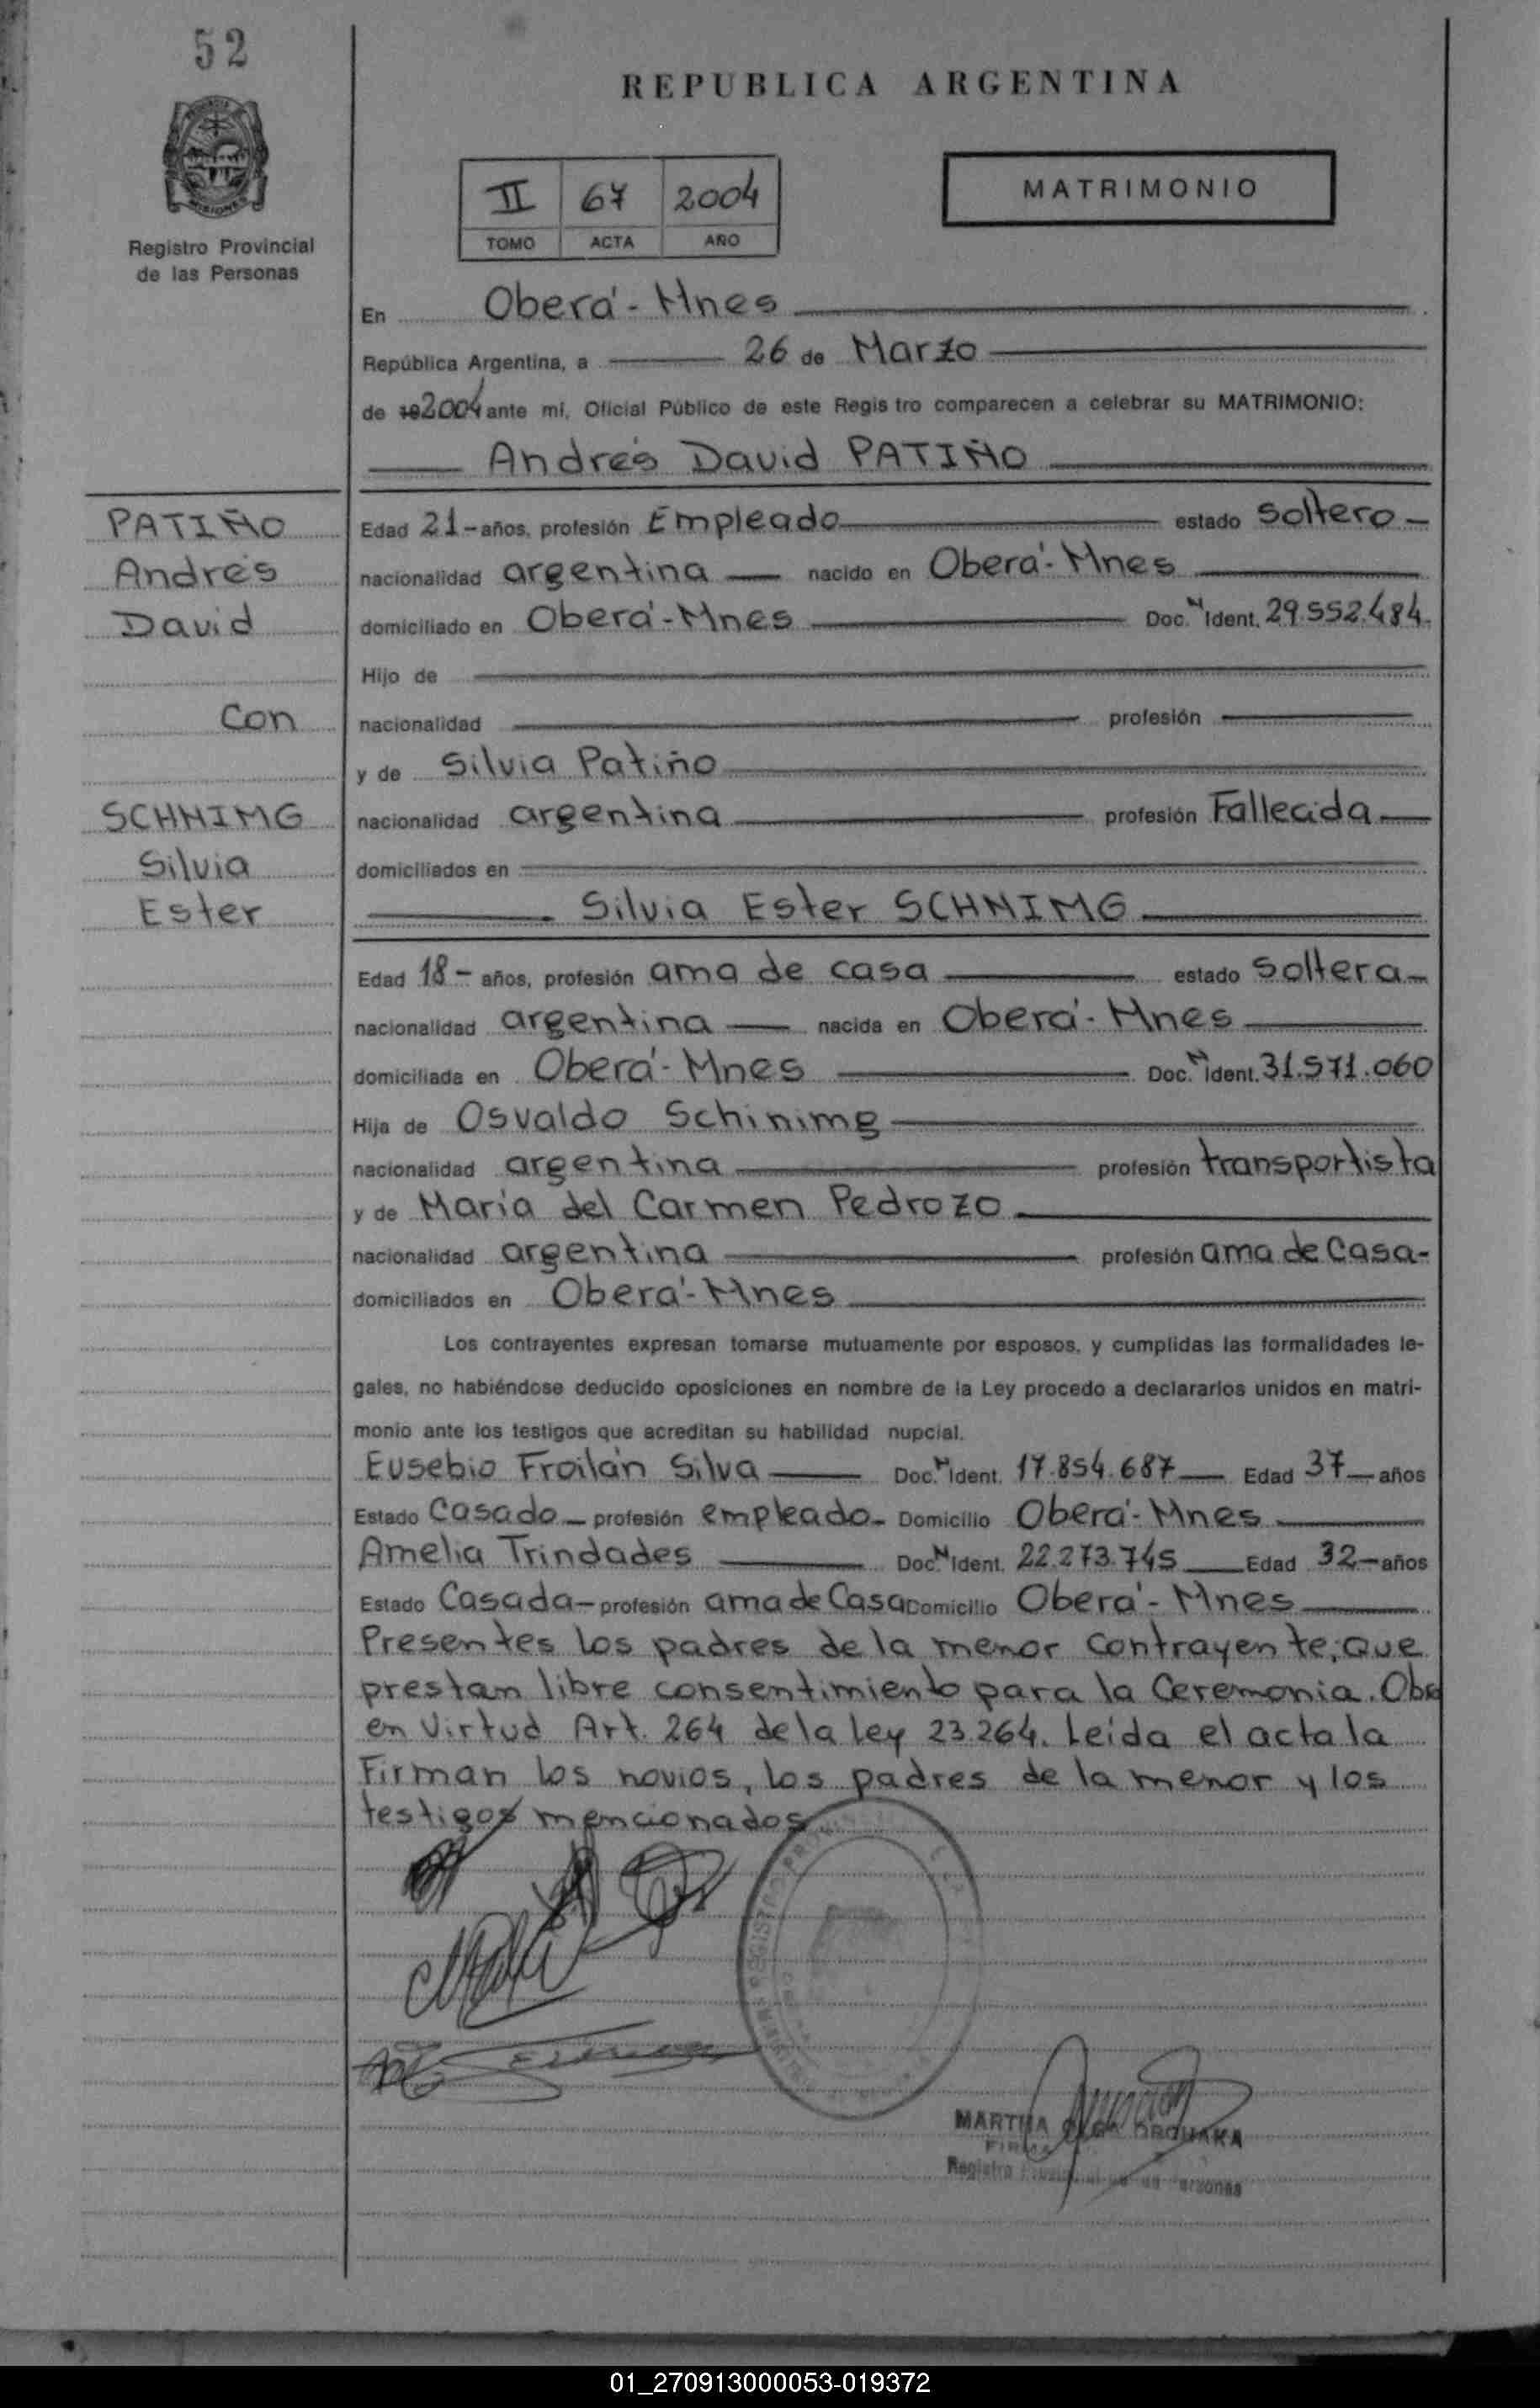 52
REPUBLICA ARGENTINA
MISIONES
Registro Provincial
de las Personas
II 67 2004
TOMO ACTA AÑO
MATRIMONIO
En Oberá - Mnes
República Argentina, a 26 de Marzo
de 192004 ante mí, Oficial Público de este Regis tro comparecen a celebrar su MATRIMONIO:
Andrés David PATIÑO
PATIÑO
Andrés
David
Con
SCHNIMG
Silvia
Ester
Edad 21- años, profesión Empleado estado Soltero-
nacionalidad argentina nacido en Oberá - Mnes
domiciliado en Oberá - Mnes Doc. N Ident. 29.552.484.
Hijo de
nacionalidad profesión
y de Silvia Patiño
nacionalidad argentina profesión Fallecida
domiciliados en
Silvia Ester SCHNIMG
Edad 18- años, profesión ama de casa estado Soltera-
nacionalidad argentina nacida en Oberá - Mnes
domiciliada en Oberá - Mnes Doc. N Ident. 31.571.060
Hija de Osvaldo Schinimg
nacionalidad argentina profesión transportista
y de María del Carmen Pedrozo
nacionalidad argentina profesión ama de Casa-
domiciliados en Oberá - Mnes
Los contrayentes expresan tomarse mutuamente por esposos, y cumplidas las formalidades le-
gales, no habiéndose deducido oposiciones en nombre de la Ley procedo a declararlos unidos en matri-
monio ante los testigos que acreditan su habilidad nupcial.
Eusebio Froilán Silva Doc. N Ident. 17.854.687 Edad 37 años
Estado Casado profesión empleado- Domicilio Oberá - Mnes
Amelia Trindades Doc. N Ident. 22.273.745 Edad 32 años
Estado Casada- profesión ama de Casa Domicilio Oberá - Mnes
Presentes los padres de la menor Contrayente, Que
prestan libre consentimiento para la Ceremonia. Obra
en Virtud Art. 264 de la ley 23.264. Leída el acta la
Firman los novios, los padres de la menor y los
testigos mencionados
MARTHA OLGA
FIRMA
Registro Provincial de las Personas
01_270913000053-019372